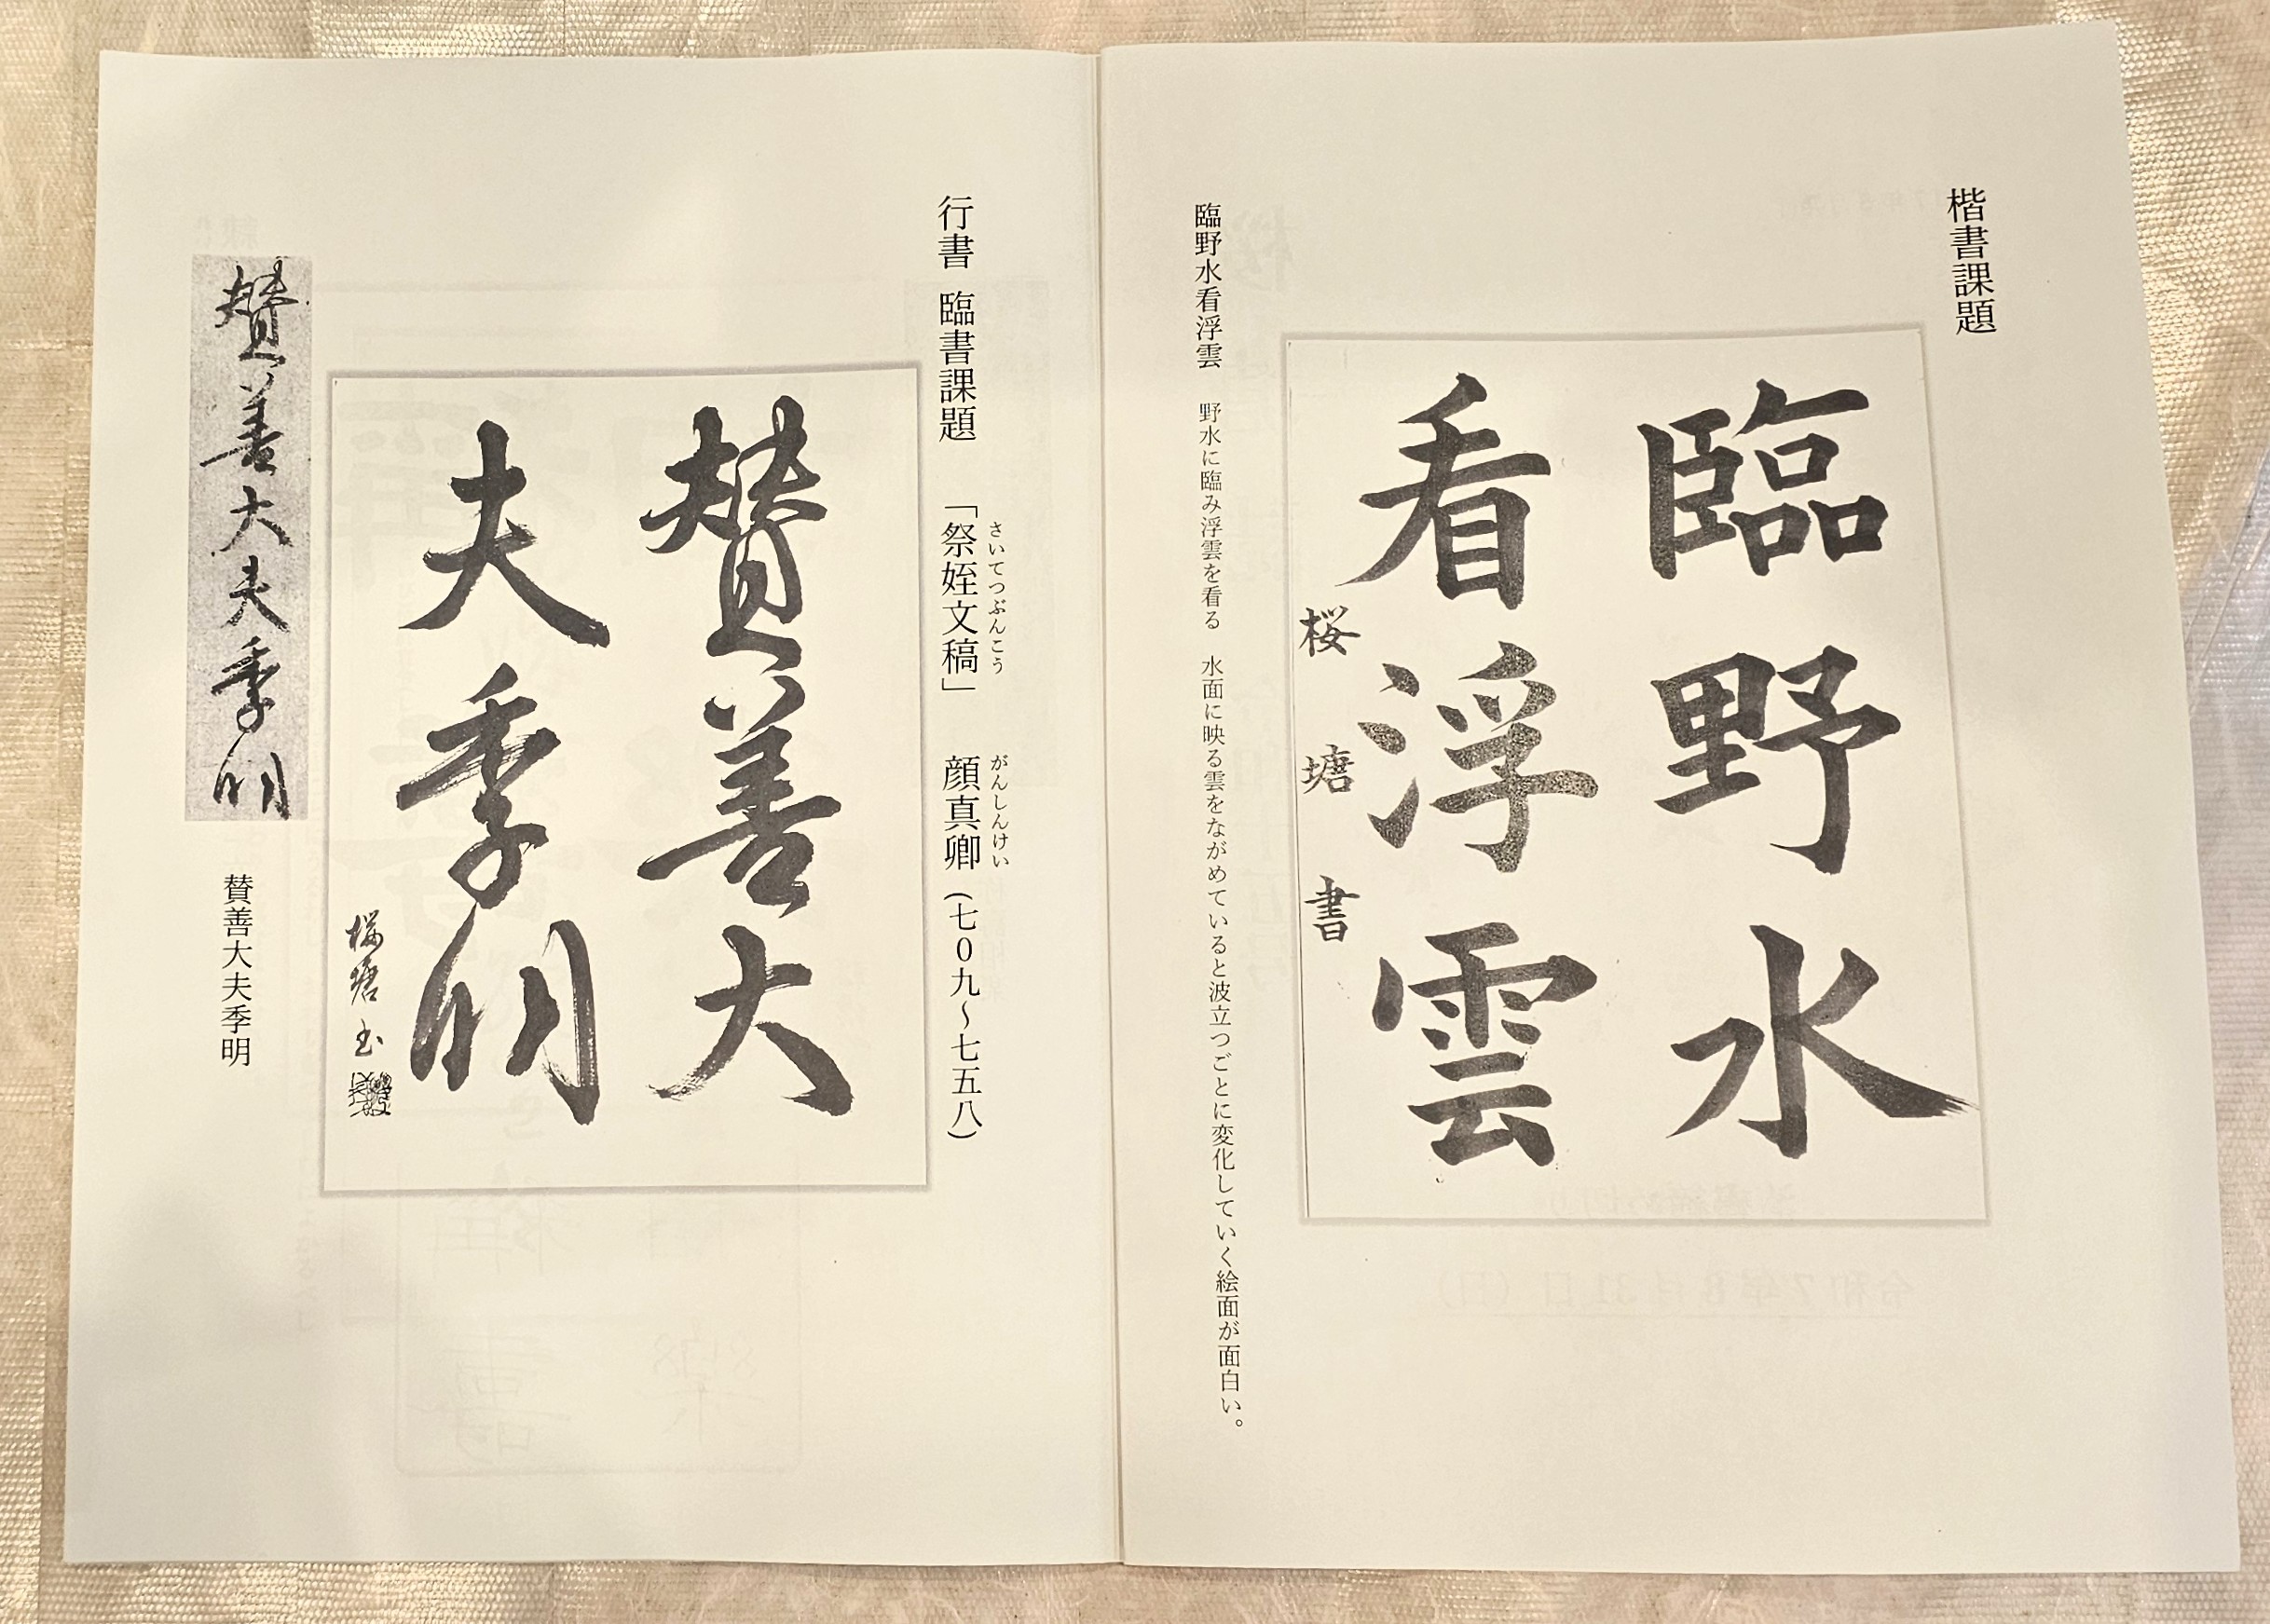 楷書課題
臨野水
看浮雲
桜塘書
臨野水看浮雲　野水に臨み浮雲を看る　水面に映る雲をながめていると波立つごとに変化していく絵面が面白い。
行書　臨書課題　「祭姪文稿」　顔真卿（七０九～七五八）
さいてつぶんこう　がんしんけい
賛善大
夫季明
桜塘
賛善大夫季明
賛善大夫季明